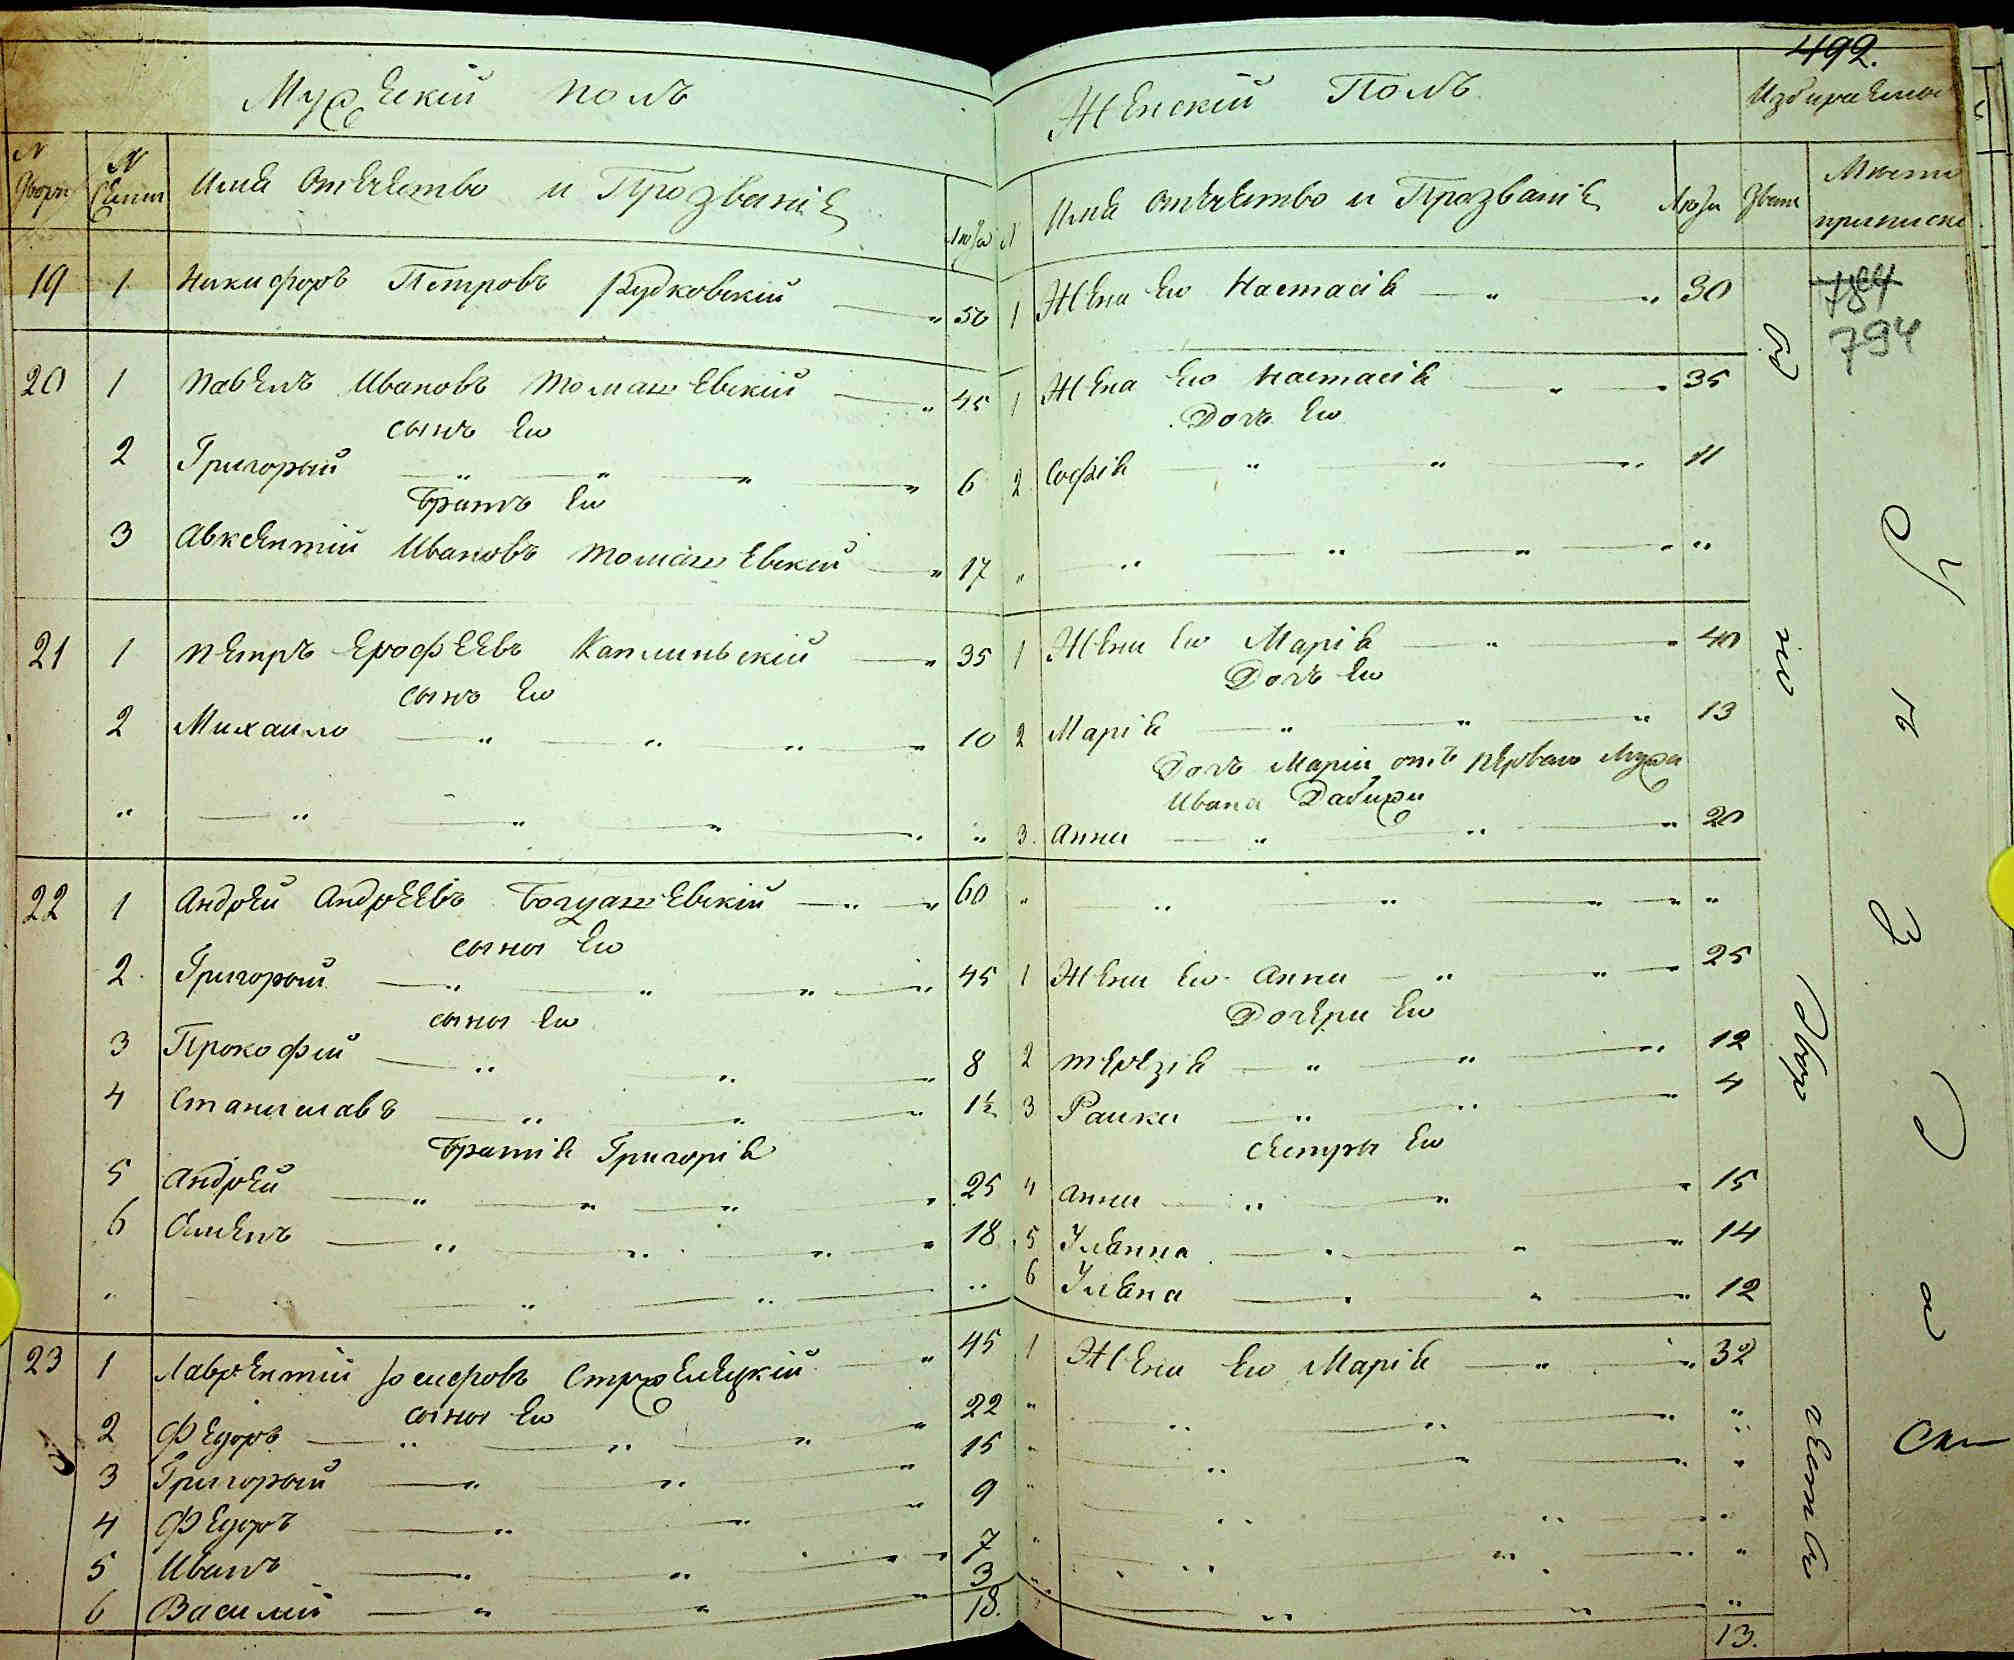 492.
Мужескій полъ
Женскій Полъ
Избираемое
№ Двора
№ Семьи
Имя Отчество и Прозваніе
Лѣта
№
Имя Отчество и Прозваніе
Лѣта
Званіе
Место приписки
19 1 Никифоръ Петровъ Рудковскій 50 1 Жена его Настасія 30
784
794
20 1 Павелъ Ивановъ Томашевскій 45 1 Жена его Настасія 35
сынъ его
Дочь его
2 Григорый 6 2 Софія 11
Братъ его
3 Авксентій Ивановъ Томашевскій 17
21 1 Петръ Ерофеевъ Каплинскій 35 1 Жена его Марія 40
сынъ его
Дочь его
2 Михаило 10 2 Марія 13
Дочь Маріи отъ перваго Мужа
Ивана Дабижи
3. Анна 20
22 1 Андрей Андреевъ Богушевскій 60
сыны его
2. Григорый 45 1 Жена его Анна 25
сыны его
Дочери его
3 Прокофій 8 2 Терезія 12
4 Станиславъ 1½ 3 Раика 4
Братія Григорія
сестры его
5 Андрей 25 4 Анна 15
6 Семенъ 18 5 Улянна 14
6 Уляна 12
23 1 Лаврентій Іосифовъ Стржелецкій 45 1 Жена его Марія 32
сыны его
2 Федоръ 22
3 Григорый 15
4 Федоръ 9
5 Иванъ 7
6 Василій 3
18.
13.